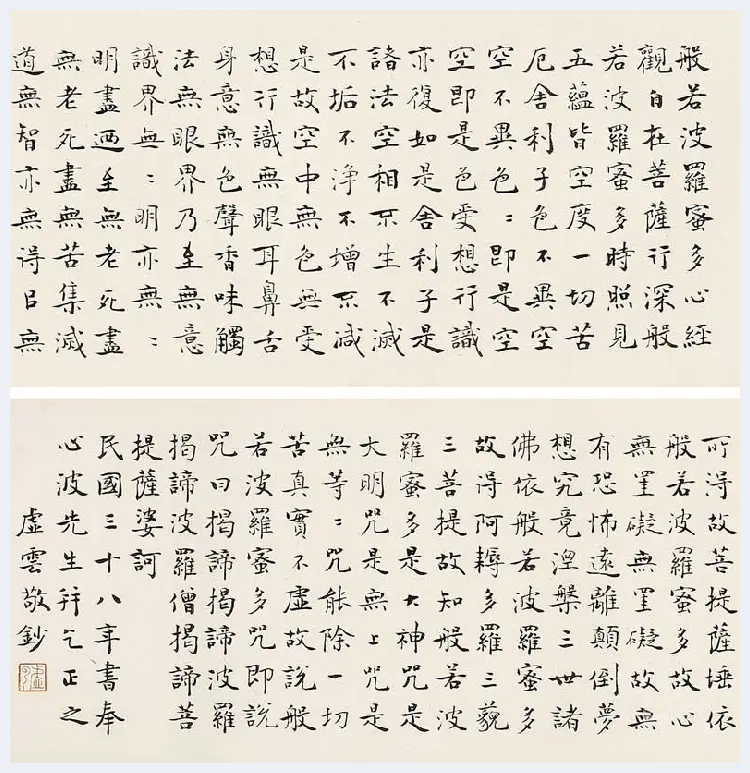 般若波羅蜜多心經
觀自在菩薩行深般
若波羅蜜多時照見
五蘊皆空度一切苦
厄舍利子色不異空
空不異色〻即是空
空即是色受想行識
亦復如是舍利子是
諸法空相不生不滅
不垢不淨不增不減
是故空中無色無受
想行識無眼耳鼻舌
身意無色聲香味觸
法無眼界乃至無意
識界無〻明亦無〻
明盡迺至無老死盡
無老死盡無苦集滅
道無智亦無得㠯無
所得故菩提薩埵依
般若波羅蜜多故心
無罣礙無罣礙故無
有恐怖遠離顛倒夢
想究竟涅槃三世諸
佛依般若波羅蜜多
故得阿耨多羅三藐
三菩提故知般若波
羅蜜多是大神咒是
大明咒是無上咒是
無等〻咒能除一切
苦真實不虛故說般
若波羅蜜多咒即說
咒曰揭諦揭諦波羅
揭諦波羅僧揭諦菩
提薩婆訶
民國三十八年書奉
心波先生并乞正之
虛雲敬鈔